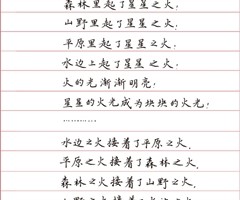 森林里起了星星之火；
山野里起了星星之火；
平原里起了星星之火；
水边上起了星星之火；
火的光渐渐明亮；
星星的火光成为块块的火光；
…………
水边之火接着了平原之火，
平原之火接着了森林之火，
森林之火接着了山野之火，